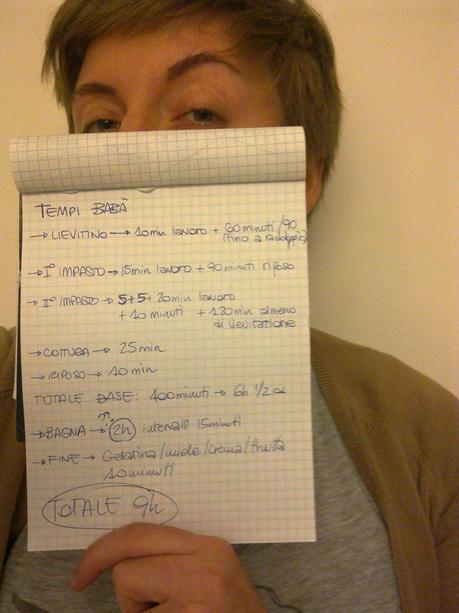 TEMPI BABÀ
→ LIEVITINO → 10min lavoro + 60 minuti/90
(fino a raddoppio)
→ I° IMPASTO → 15min lavoro + 90 minuti riposo
→ II° IMPASTO → 5+5+20min lavoro
+ 10 minuti + 120 min almeno
di lievitazione
→ COTTURA → 25 min
→ RIPOSO → 10 min
TOTALE BASE: 400 minuti → 6h 1/2 
→ BAGNA → 2h intervalli 15minuti
→ FINE → Gelatina/miele/crema/frutta
10 minuti
TOTALE 9h